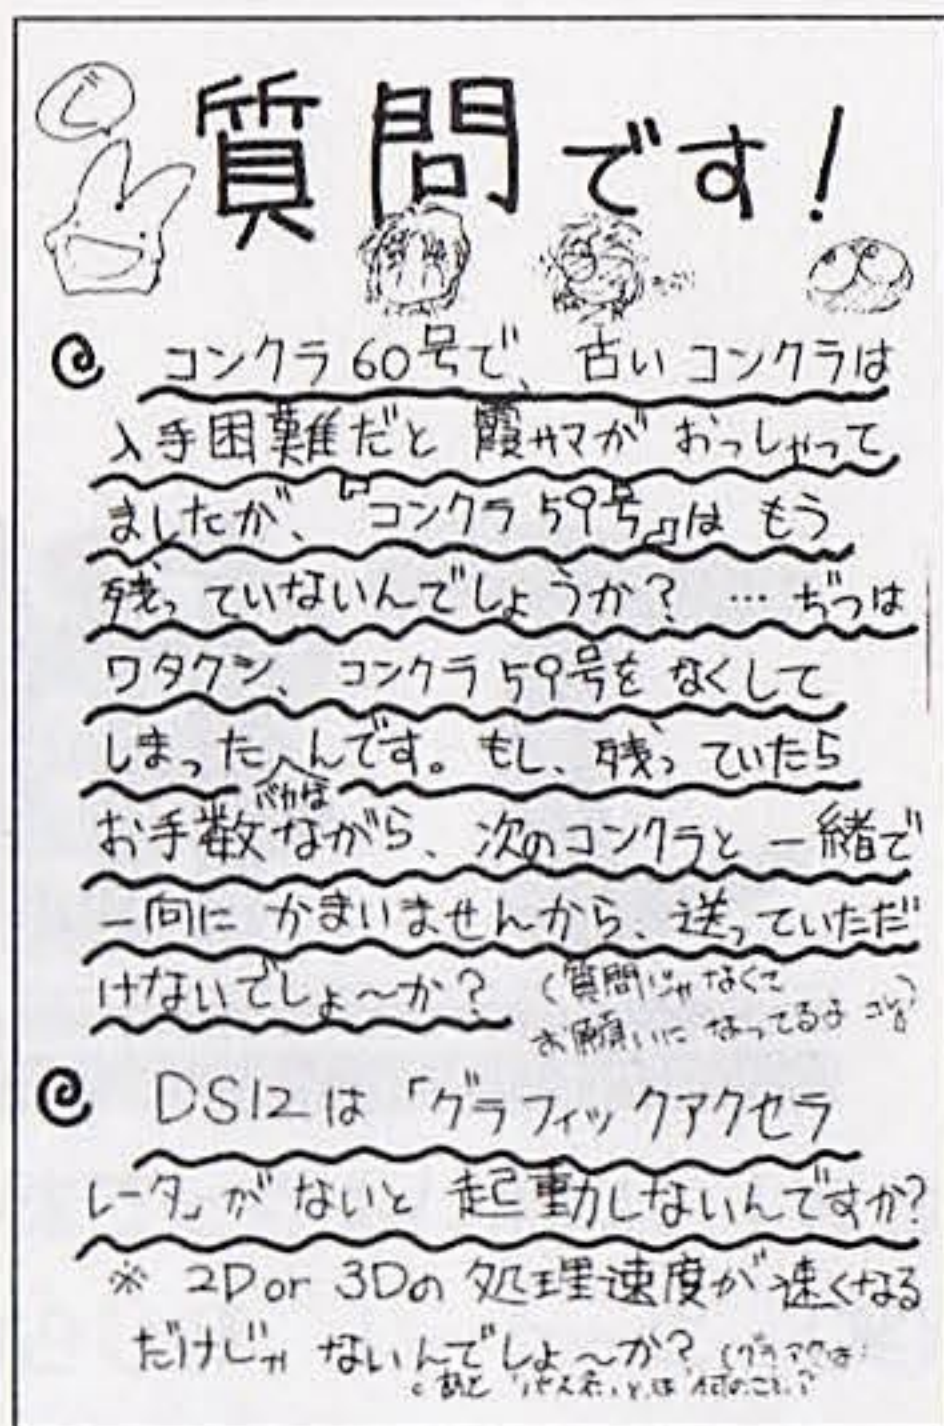 じ
質問です!
コンクラ60号で、古いコンクラは
入手困難だと霞サマがおっしゃって
ましたが、『コンクラ59号』はもう
残っていないんでしょうか?…ぢつは
ワタクシ、コンクラ59号をなくして
しまったんです。もし、残っていたら
バカな
お手数ながら、次のコンクラと一緒で
一向にかまいませんから、送っていただ
けないでしょ~か?
(質問じゃなくて
お願いになってるよ
DS12は「グラフィックアクセラ
レータ」がないと起動しないんですか?
※ 2D or 3Dの処理速度が速くなる
だけじゃないんでしょ~か?(グラアクは
とは何のこと?